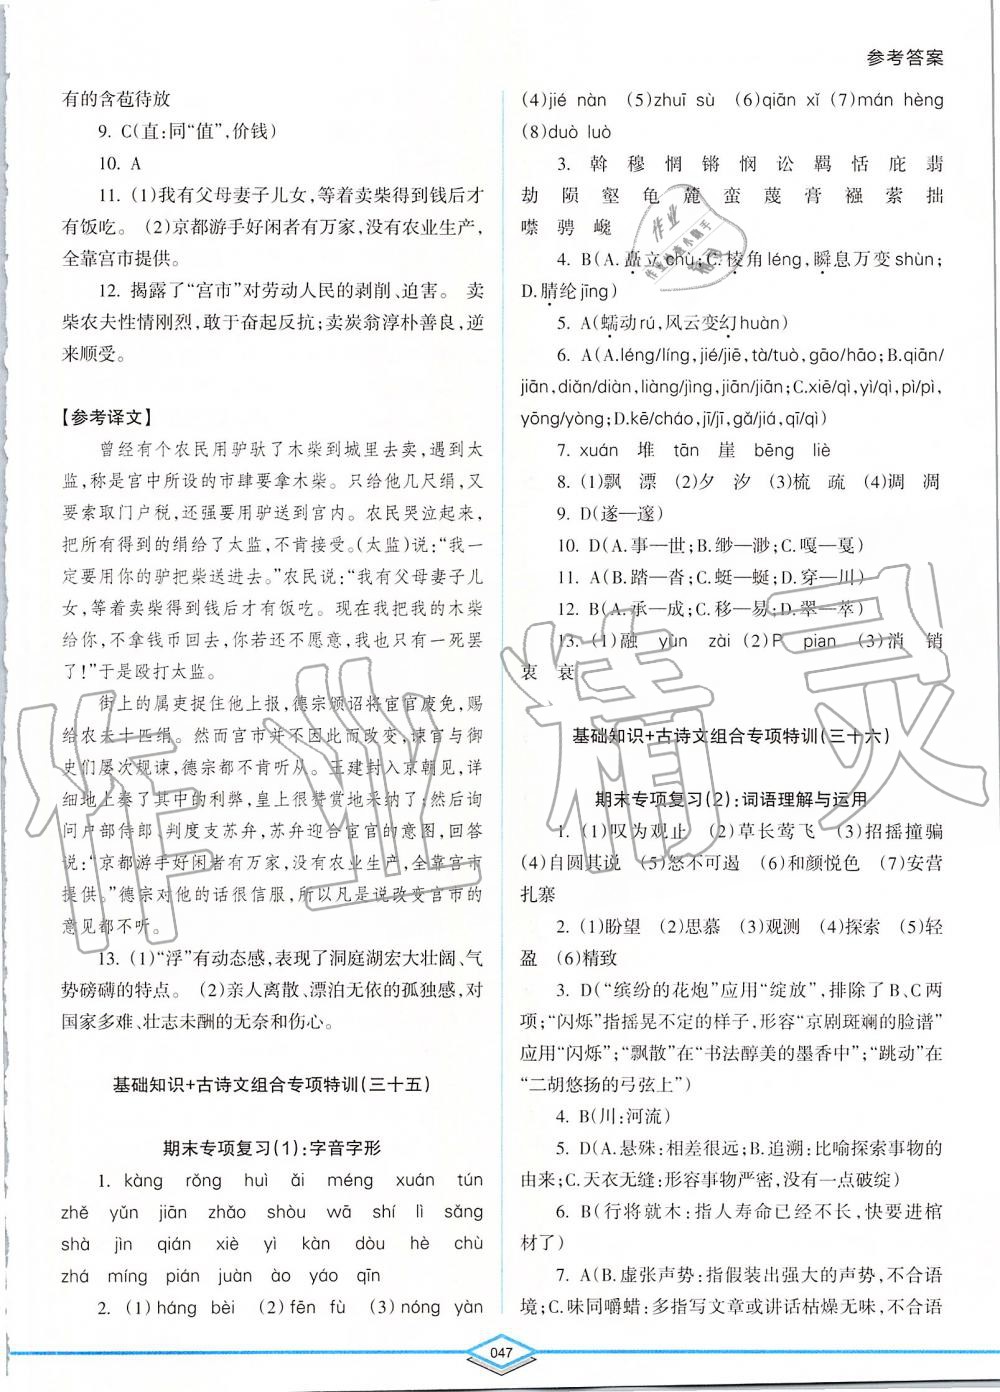 参考答案
有的含苞待放
9. C(直:同“值”,价钱)
10. A
11. (1)我有父母妻子儿女,等着卖柴得到钱后才
有饭吃。 (2)京都游手好闲者有万家,没有农业生产,
全靠宫市提供。
12. 揭露了“宫市”对劳动人民的剥削、迫害。 卖
柴农夫性情刚烈,敢于奋起反抗;卖炭翁淳朴善良,逆
来顺受。
【参考译文】
曾经有个农民用驴驮了木柴到城里去卖,遇到太
监,称是宫中所设的市肆要拿木柴。只给他几尺绢,又
要索取门户税,还强要用驴送到宫内。农民哭泣起来,
把所有得到的绢给了太监,不肯接受。(太监)说:“我一
定要用你的驴把柴送进去。”农民说:“我有父母妻子儿
女,等着卖柴得到钱后才有饭吃。现在我把我的木柴
给你,不拿钱币回去,你若还不愿意,我也只有一死罢
了!”于是殴打太监。
街上的属吏捉住他上报,德宗颁诏将宦官废免,赐
给农夫十匹绢。然而宫市并不因此而改变,谏官与御
史们屡次规谏,德宗都不肯听从。王建封入京朝见,详
细地上奏了其中的利弊,皇上很赞赏地采纳了;然后询
问户部侍郎、判度支苏弁,苏弁迎合宦官的意图,回答
说:“京都游手好闲者有万家,没有农业生产,全靠宫市
提供。”德宗对他的话很信服,所以凡是说改变宫市的
意见都不听。
13. (1)“浮”有动态感,表现了洞庭湖宏大壮阔、气
势磅礴的特点。 (2)亲人离散、漂泊无依的孤独感,对
国家多难、壮志未酬的无奈和伤心。
基础知识+古诗文组合专项特训(三十五)
期末专项复习(1):字音字形
1. kàng rǒng huì ǎi méng xuán tún
zhě yǔn jiān zhǎo shòu wā shí lì sǎng
shà jìn qián xiè yì kàn dòu hè chù
zhá míng pián juàn ào yáo qīn
2. (1)háng bèi (2)fēn fù (3)nóng yàn
(4)jié nàn (5)zhuī sù (6)qiān xǐ (7)mán hèng
(8)duò luò
3. 斡 穆 惘 锵 悯 讼 羁 恬 庇 翡
劫 陨 壑 龟 麓 蛮 蔑 膏 襁 萦 拙
噤 骋 巉
4. B(A.矗立chù;C.棱角léng,瞬息万变shùn;
D.腈纶jīng)
5. A(蠕动rú,风云变幻huàn)
6. A(A.léng/líng,jié/jiē,tà/tuò,gāo/hāo;B.qiān/
jiān,diǎn/diàn,liàng/jìng,jiān/jiàn;C.xiē/qì,yì/qì,pì/pì,
yōng/yòng;D.kē/cháo,jǐ/jī,gǎ/jiá,qī/qì)
7. xuán 堆 tān 崖 bēng liè
8. (1)飘 漂 (2)夕 汐 (3)梳 疏 (4)调 凋
9. D(遂—邃)
10. D(A.事—世;B.缈—渺;C.嘎—戛)
11. A(B.踏—沓;C.蜓—蜒;D.穿—川)
12. B(A.承—成;C.移—易;D.翠—萃)
13. (1)融 yùn zài (2)P pian (3)消 销
衷 衰
基础知识+古诗文组合专项特训(三十六)
期末专项复习(2):词语理解与运用
1. (1)叹为观止 (2)草长莺飞 (3)招摇撞骗
(4)自圆其说 (5)怒不可遏 (6)和颜悦色 (7)安营
扎寨
2. (1)盼望 (2)思慕 (3)观测 (4)探索 (5)轻
盈 (6)精致
3. D(“缤纷的花炮”应用“绽放”,排除了B、C两
项;“闪烁”指摇晃不定的样子,形容“京剧斑斓的脸谱”
应用“闪烁”;“飘散”在“书法醇美的墨香中”;“跳动”在
“二胡悠扬的弓弦上”)
4. B(川:河流)
5. D(A.悬殊:相差很远;B.追溯:比喻探索事物的
由来;C.天衣无缝:形容事物严密,没有一点破绽)
6. B(行将就木:指人寿命已经不长,快要进棺
材了)
7. A(B.虚张声势:指假装出强大的声势,不合语
境;C.味同嚼蜡:多指写文章或讲话枯燥无味,不合语
047
作业精灵